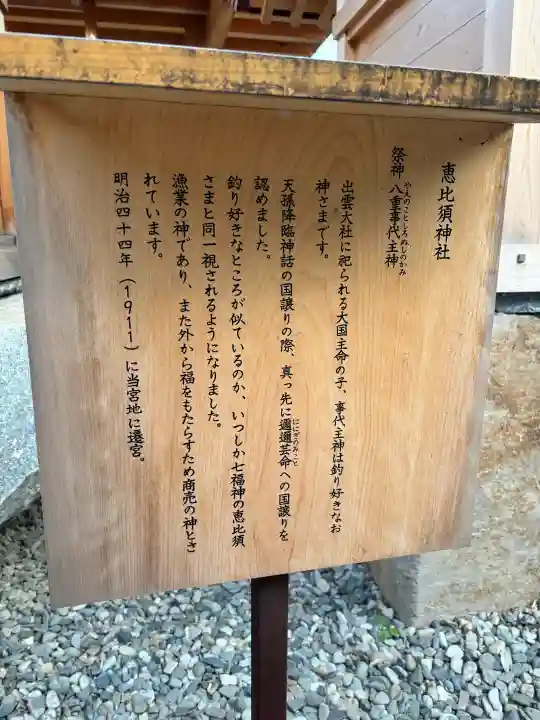 恵比須神社
祭神 八重事代主神
やえのことしろぬしのかみ
出雲大社に祀られる大国主命の子、事代主神は釣り好きなお
神さまです。
天孫降臨神話の国譲りの際、真っ先に邇邇芸命への国譲りを
ににぎのみこと
認めました。
釣り好きなところが似ているのか、いつしか七福神の恵比須
さまと同一視されるようになりました。
漁業の神であり、また外から福をもたらすため商売の神とさ
れています。
明治四十四年（1911）に当宮地に遷宮。